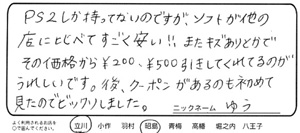 PS2しか持ってないのですが、ソフトが他の
店に比べてすごく安い!!またキズありとかで
その価格から¥200、¥500引きしてくれてるのが
うれしいです。後、クーポンがあるのも初めて
見たのでビックリしました。
ニックネーム ゆう
よく利用されるお店を
○で囲んでください。
立川 小作 羽村 昭島 青梅 高幡 堀之内 八王子